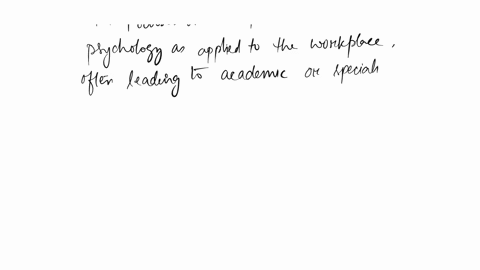 psychology as applied to the workplace,
often leading to academic or special